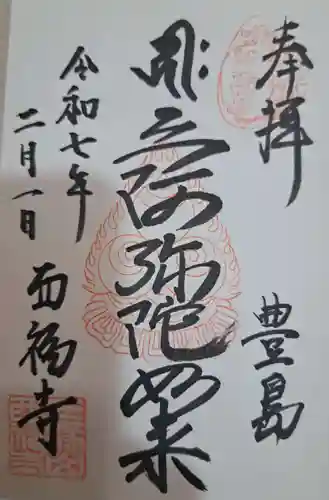 奉拝
豊島
ह्रीः六阿弥陀如来
令和七年
二月一日
西福寺